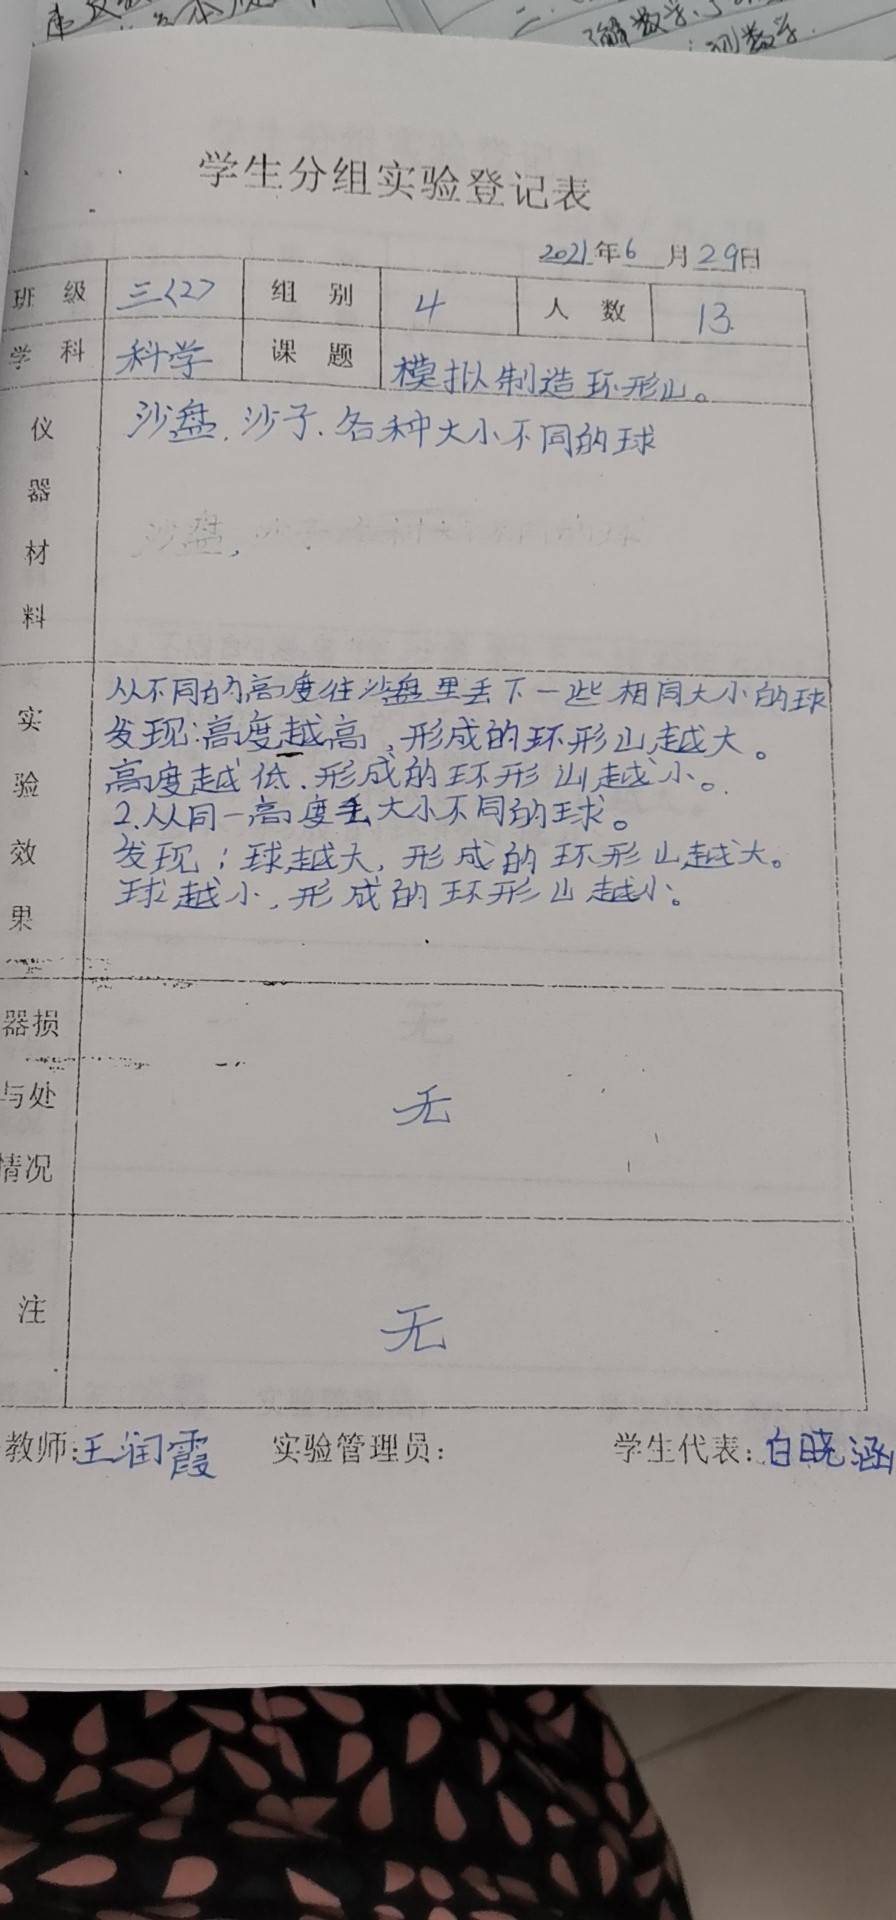 解数学
学生分组实验登记表
2021年6月29日
班级 三<2> 组别 4 人数 13.
学科 科学 课题 模拟制造环形山。
仪器材料 沙盘.沙子.各种大小不同的球
实验效果
从不同的高度往沙盘里丢下一些相同大小的球
发现:高度越高,形成的环形山越大。
高度越低.形成的环形山越小。
2.从同一高度丢大小不同的球。
发现:球越大,形成的环形山越大。
球越小,形成的环形山越小。
器损
与处
情况
无
注
无
教师:王润霞 实验管理员: 学生代表:白晓涵